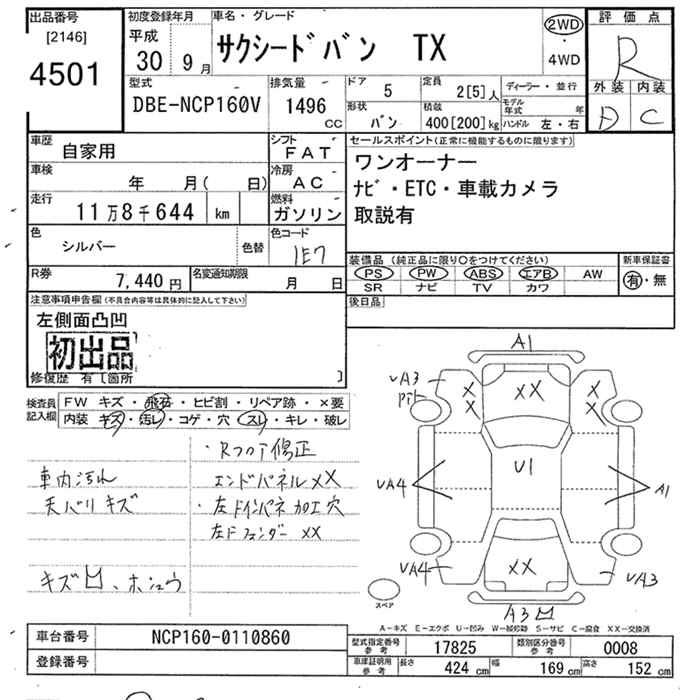 出品番号 [2146] 4501
初度登録年月 平成 30年 9月
車名・グレード サクシードバン TX
2WD・4WD
評価点 R
外装 D 内装 C
型式 DBE-NCP160V
排気量 1496 CC
ドア 5
定員 2[5]人
形状 バン
積載 400[200]kg
ディーラー・並行
モデル年式 年
ハンドル 左・右
車歴 自家用
シフト FAT
車検 年 月( 日)
冷房 AC
走行 11万8千644 km
燃料 ガソリン
色 シルバー 色替
色コード 1E7
R券 7,440円
名変通知期限 月 日
セールスポイント(正常に機能するものに限ります)
ワンオーナー
ナビ・ETC・車載カメラ
取説有
装備品(純正品に限り○をつけてください)
PS PW ABS エアB AW
SR ナビ TV カワ
新車保証書 有・無
後日品
注意事項申告欄(不具合内容等は具体的に記入して下さい)
左側面凸凹
初出品
修復歴 有 [箇所 ]
検査員記入欄
FW キズ・飛石・ヒビ割・リペア跡・×要
内装 キズ・汚レ・コゲ・穴・スレ・キレ・破レ
・Rフロア修正
車内汚れ
エンドパネルXX
天バリキズ
・左Fインパネ加工穴
左Fフェンダー XX
キズ凹、ホシュウ
A1
UA3
XX
XX
XX
U1
UA4
A1
UA4
XX
UA3
A3凹
スペア
A-キズ E-エクボ U-凹み W-補修跡 S-サビ C-腐食 XX-交換済
車台番号 NCP160-0110860
登録番号
型式指定番号参考 17825
類別区分番号参考 0008
車庫証明用参考 長さ 424cm 幅 169cm 高さ 152cm